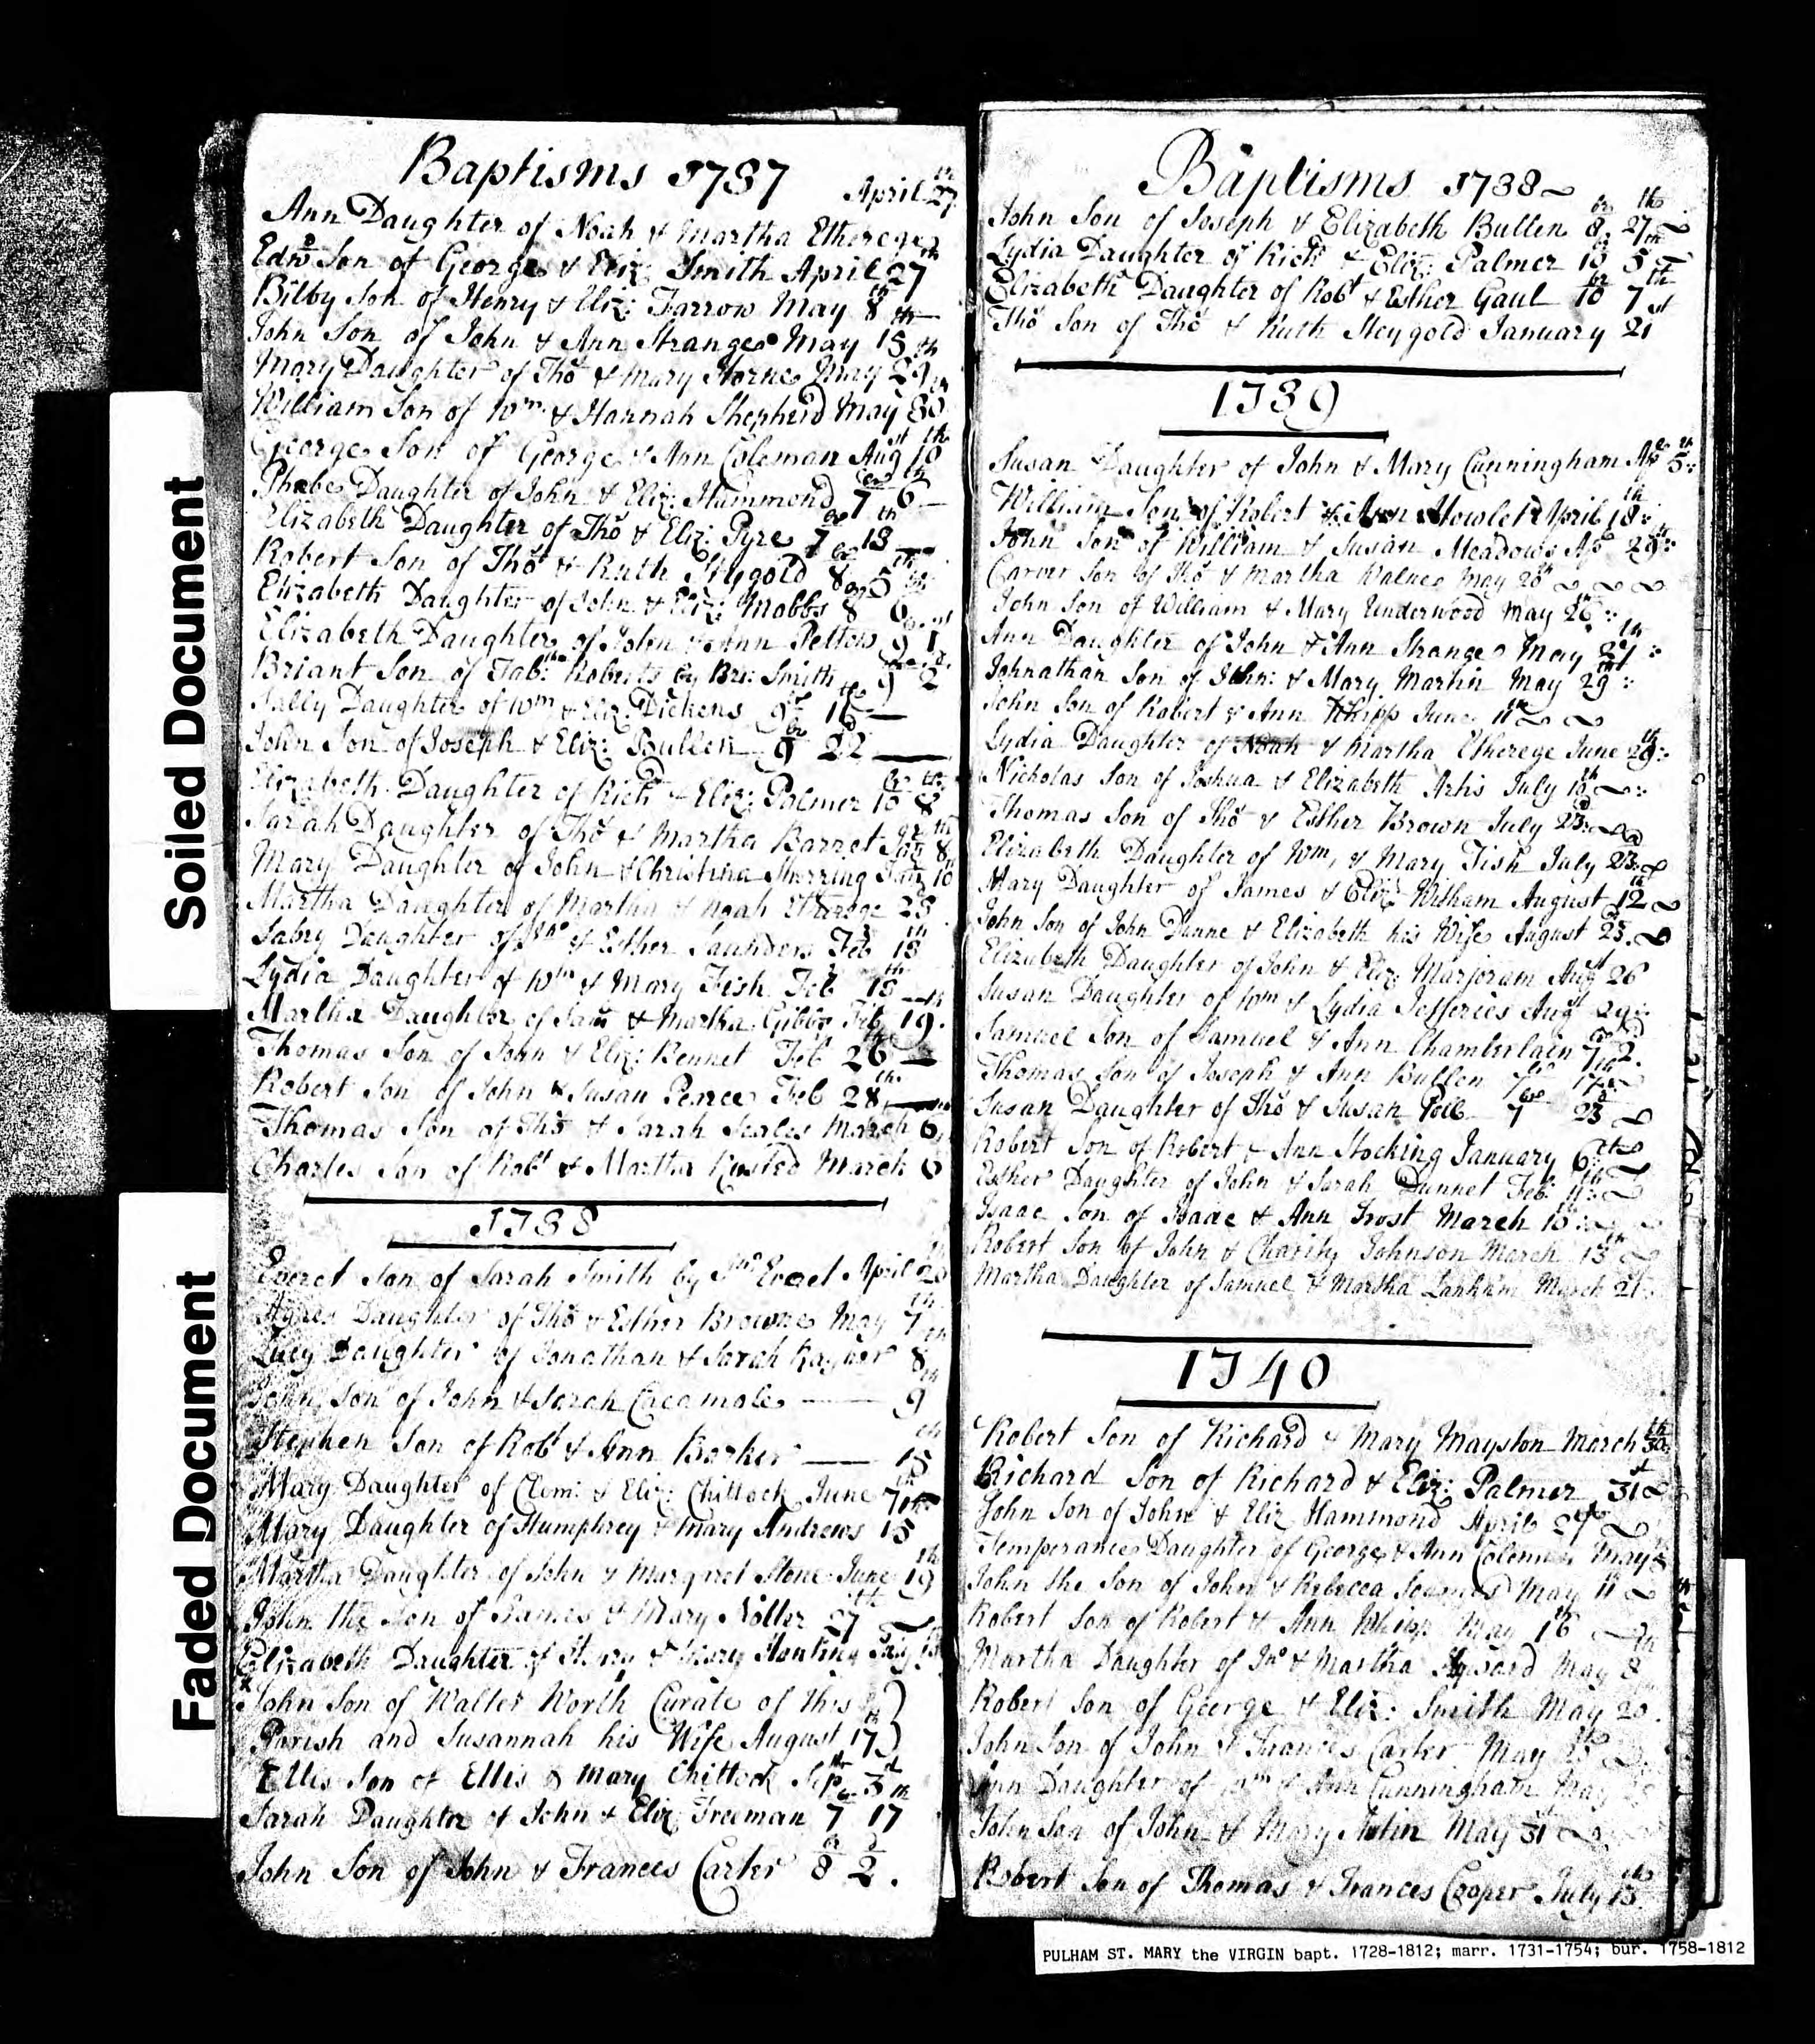 Baptisms 1737
April 27th
Ann Daughter of Noah & Martha Etherege
Edwd Son of George & Eliz: Smith April 27th
Bilby Son of Henry & Eliz: Farrow May 8th
John Son of John & Ann Strange May 15th
Mary Daughter of Tho & Mary Horne May 29th
William Son of Wm & Hannah Shepherd May 30th
George Son of George & Ann Coleman Augst 10th
Phebe Daughter of John & Eliz: Hammond 7er 6th
Elizabeth Daughter of Tho & Eliz: Pyre 7er 13th
Robert Son of Tho & Ruth Heygold 8er 5th
Elizabeth Daughter of John & Eliz: Mobbs 8er
Elizabeth Daughter of John & Ann 9er 1st
Briant Son of Tab: Roberts by Bri: Smith 9er 2d
Sally Daughter of Wm & Eliz: Dickens 9er 16th
John Son of Joseph & Eliz: Bullen 9er 22d
Elizabeth Daughter of Richd & Eliz: Palmer 10er 8th
Sarah Daughter of Tho & Martha Barret Jary 8th
Mary Daughter of John & Christina Jary 10
Martha Daughter of Martha & Noah Etherege 23
Daughter of & Esther Saunders Feb 13th
Lydia Daughter of Wm & Mary Fish Feb 15th
Martha Daughter of Sam & Martha Gibbs Feb 19th
Thomas Son of John & Eliz: Bennet Feb 26th
Robert Son of John & Susan Pearce Feb 28th
Thomas Son of Tho & Sarah Scales March 6
Charles Son of Robt & Martha March 6
1738
Everet Son of Sarah Smith by Everet April 20
Agnes Daughter of Tho & Esther Browne May 7th
Lucy Daughter of Jonathan & Sarah Rayner 8th
John Son of John & Sarah Cacamole 9th
Stephen Son of Robt & Ann Barker 15th
Mary Daughter of Clem: & Eliz: Chittock June 7th
Mary Daughter of Humphrey & Mary Andrews 15th
Martha Daughter of John & Margaret Stone June 19th
John the Son of James & Mary Noller 27th
Elizabeth Daughter of Henry & Mary July
John Son of Walter Worth Curate of this
Parish and Susannah his Wife August 17th
Ellis Son of Ellis & Mary Chittock Sepr 3
Sarah Daughter of John & Eliz: Freeman 7er 17th
John Son of John & Frances Carter 8er 2d.
Baptisms 1738
John Son of Joseph & Elizabeth Bullen 8er 27th
Lydia Daughter of Richd & Eliz: Palmer 10er 5th
Elizabeth Daughter of Robt & Esther Gaul 10er 7th
Tho Son of Tho & Ruth Heygold January 21st
1739
Susan Daughter of John & Mary Cunningham Apr 5th
William Son of Robert & Ann Howlet April 18th
John Son of William & Susan Meadows Apr 29th
Carver Son of Tho & Martha Walne May 20th
John Son of William & Mary Underwood May 26th
Ann Daughter of John & Ann Strange May 27th
Johnathan Son of John: & Mary Martin May 29th
John Son of Robert & Ann Whipp June 11th
Lydia Daughter of Noah & Martha Etherege June 29th
Nicholas Son of Joshua & Elizabeth Artis July 16th
Thomas Son of Tho & Esther Brown July 23d
Elizabeth Daughter of Wm & Mary Fish July 23d
Mary Daughter of James & Eliz: Witham August 12th
John Son of John Dunne & Elizabeth his Wife August 25
Elizabeth Daughter of John & Eliz: Marjoram Augst 26
Susan Daughter of Wm & Lydia Jefferies Augst 29
Samuel Son of Samuel & Ann Chamberlain 7er 2d
Thomas Son of Joseph & Ann Bullen 7er 17th
Susan Daughter of Tho & Susan 7er 23d
Robert Son of Robert & Ann Stocking January 6th
Esther Daughter of John & Sarah Dunnet Feb: 11th
Isaac Son of Isaac & Ann Frost March 10
Robert Son of John & Charity Johnson March 13th
Martha Daughter of Samuel & Martha Lanham March 21
1740
Robert Son of Richard & Mary Mayston March 30th
Richard Son of Richard & Eliz: Palmer 31st
John Son of John & Eliz Hammond April
Temperance Daughter of George & Ann Coleman May 8
John the Son of John & Rebecca May 11
Robert Son of Robert & Ann Whipp May 16th
Martha Daughter of Jno & Martha May 8th
Robert Son of George & Eliz: Smith May 20.
John Son of John & Frances Carter May 25th
Ann Daughter of Wm & Ann Cunningham May
John Son of John & Mary May 31st
Robert Son of Thomas & Frances Cooper July 13th
Soiled Document
Faded Document
PULHAM ST. MARY the VIRGIN bapt. 1728-1812; marr. 1731-1754; bur. 1758-1812